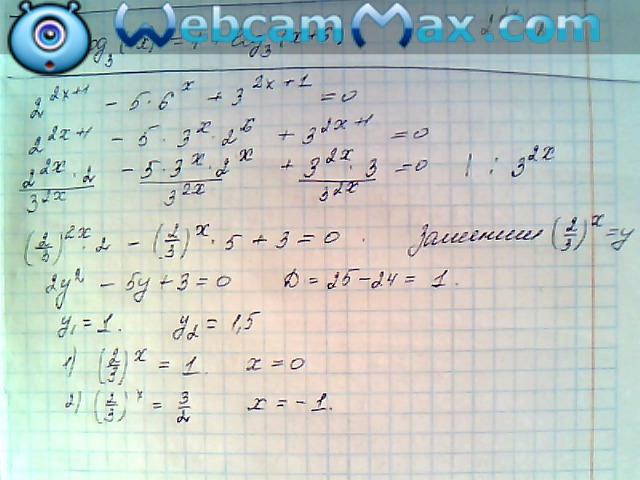 WebcamMax.com
2^{2x+1} - 5·6^x + 3^{2x+1} = 0
2^{2x+1} - 5·3^x·2^x + 3^{2x+1} = 0
\frac{2^{2x}·2}{3^{2x}} - \frac{5·3^x·2^x}{3^{2x}} + \frac{3^{2x}·3}{3^{2x}} = 0 | : 3^{2x}
(\frac{2}{3})^{2x}·2 - (\frac{2}{3})^x·5 + 3 = 0. Заменим (\frac{2}{3})^x = y
2y² - 5y + 3 = 0 D = 25 - 24 = 1.
y₁ = 1. y₂ = 1,5
1) (\frac{2}{3})^x = 1. x = 0
2) (\frac{2}{3})^x = \frac{3}{2} x = -1.